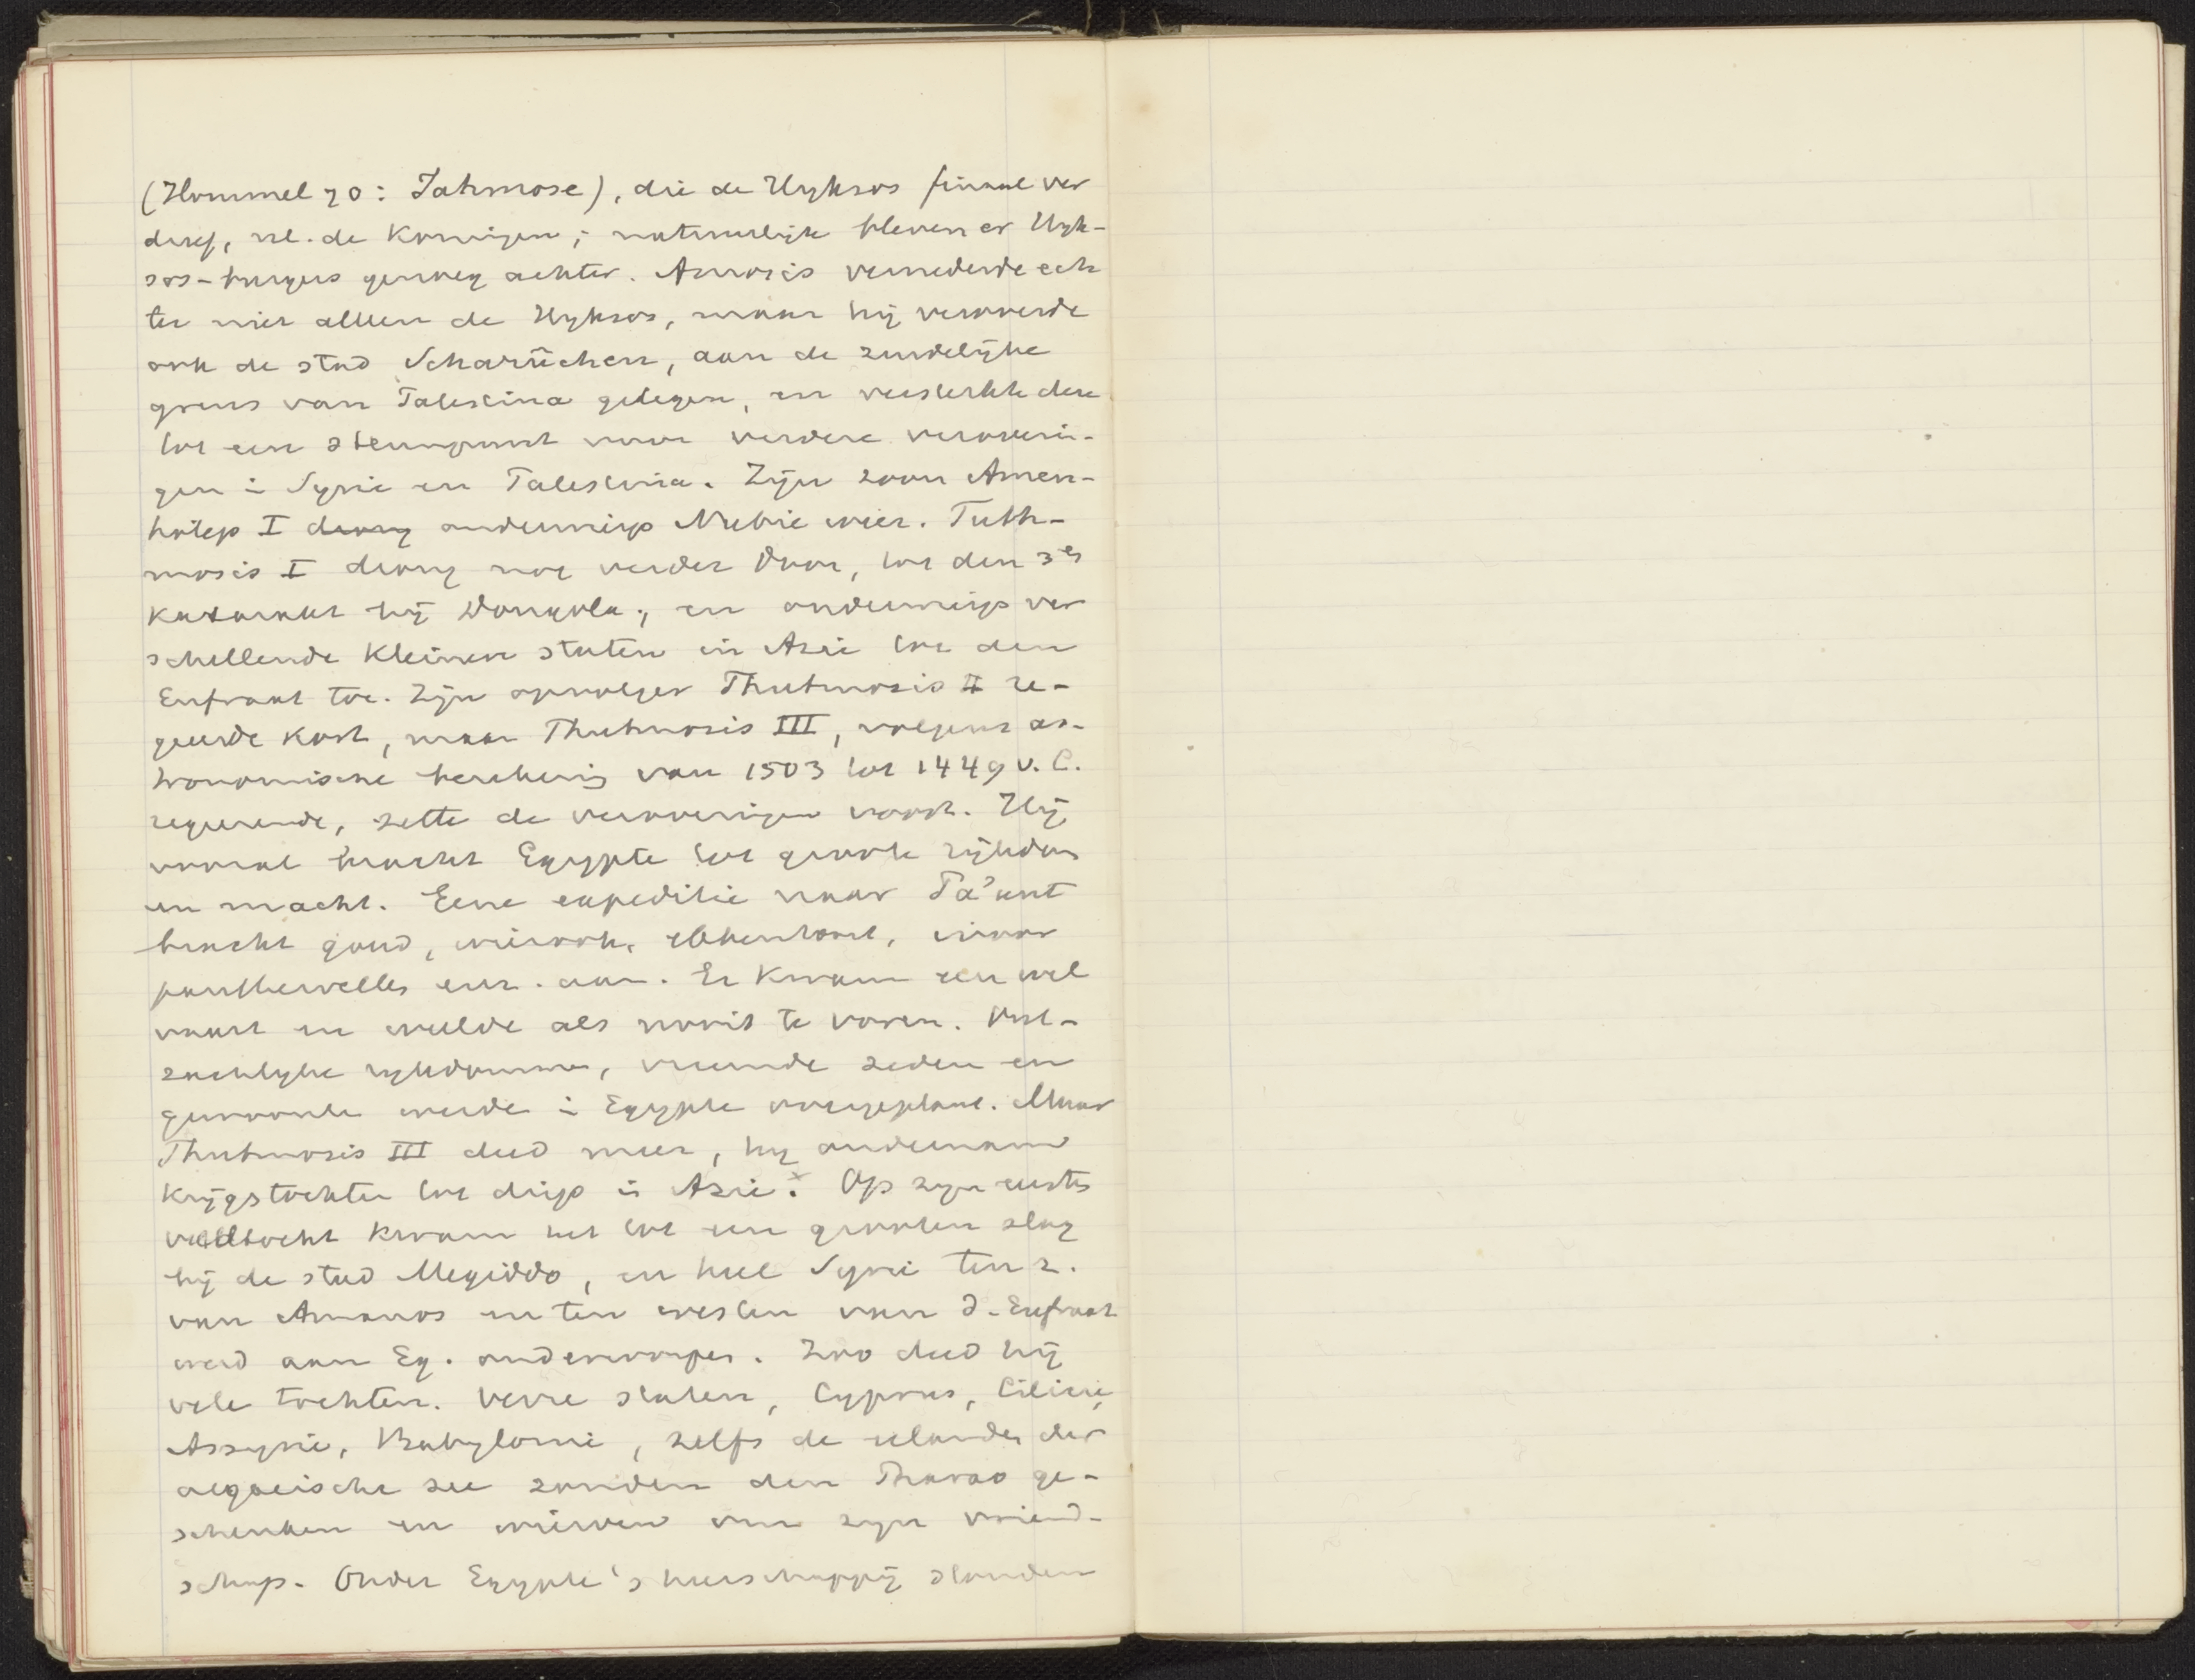 (Hommel 70: Jahmose), die de Hyksos finaal ver
dreef, nl. de Koningen; natuurlijk bleven er Hyk-
sos-burgers genoeg achter. Amosis vernederde ech
ter niet alleen de Hyksos, maar hij veroverde
ook de stad Scharûchen, aan de zuidelijke
grens van Palestina gelegen, en versterkte deze
tot een steunpunt voor verdere veroverin-
gen in Syrie en Palestina. Zijn zoon Amen-
hotep I drong onderwierp Nubie weer. Tuth-
mosis I drong nog verder door, tot den 3en
Katarakt bij Dongola; en onderwierp ver
schillende kleinere staten in Azie tot den
Eufraat toe. Zijn opvolger Thutmosis II re-
geerde kort, maar Thutmosis III, volgens as-
tronomische berekening van 1503 tot 1449 v. C.
regeerende, zette de veroveringen voort. Hij
vooral bracht Egypte tot groote rijkdom
en macht. Eene expeditie naar Pa'unt
bracht goud, wierook, ebbenhout, ivoor
panthervellen enz. aan. Er kwam een wel
vaart en weelde als nooit te voren. Oost-
zachlyke rykdommen, vreemde zeden en
gewoonten werden in Egypte overgeplant. Maar
Thutmosis III deed meer, hij ondernam
Krijgstochten tot diep in Azie. Op zijn eerste
veldtocht kwam het tot een grooten slag
bij de stad Megiddo, en heel Syrie ten z.
van Amanos en ten westen van d. Eufraat
werd aan Eg. onderworpen. Zoo deed hij
vele tochten. Verre staten, Cyprus, Cilicie,
Assyrie, Babylonie, zelfs de eilanden der
aegaeische zee zonden den Pharao ge-
schenken en wierven om zijn vriend-
schap. Onder Egypte's heerschappij stonden